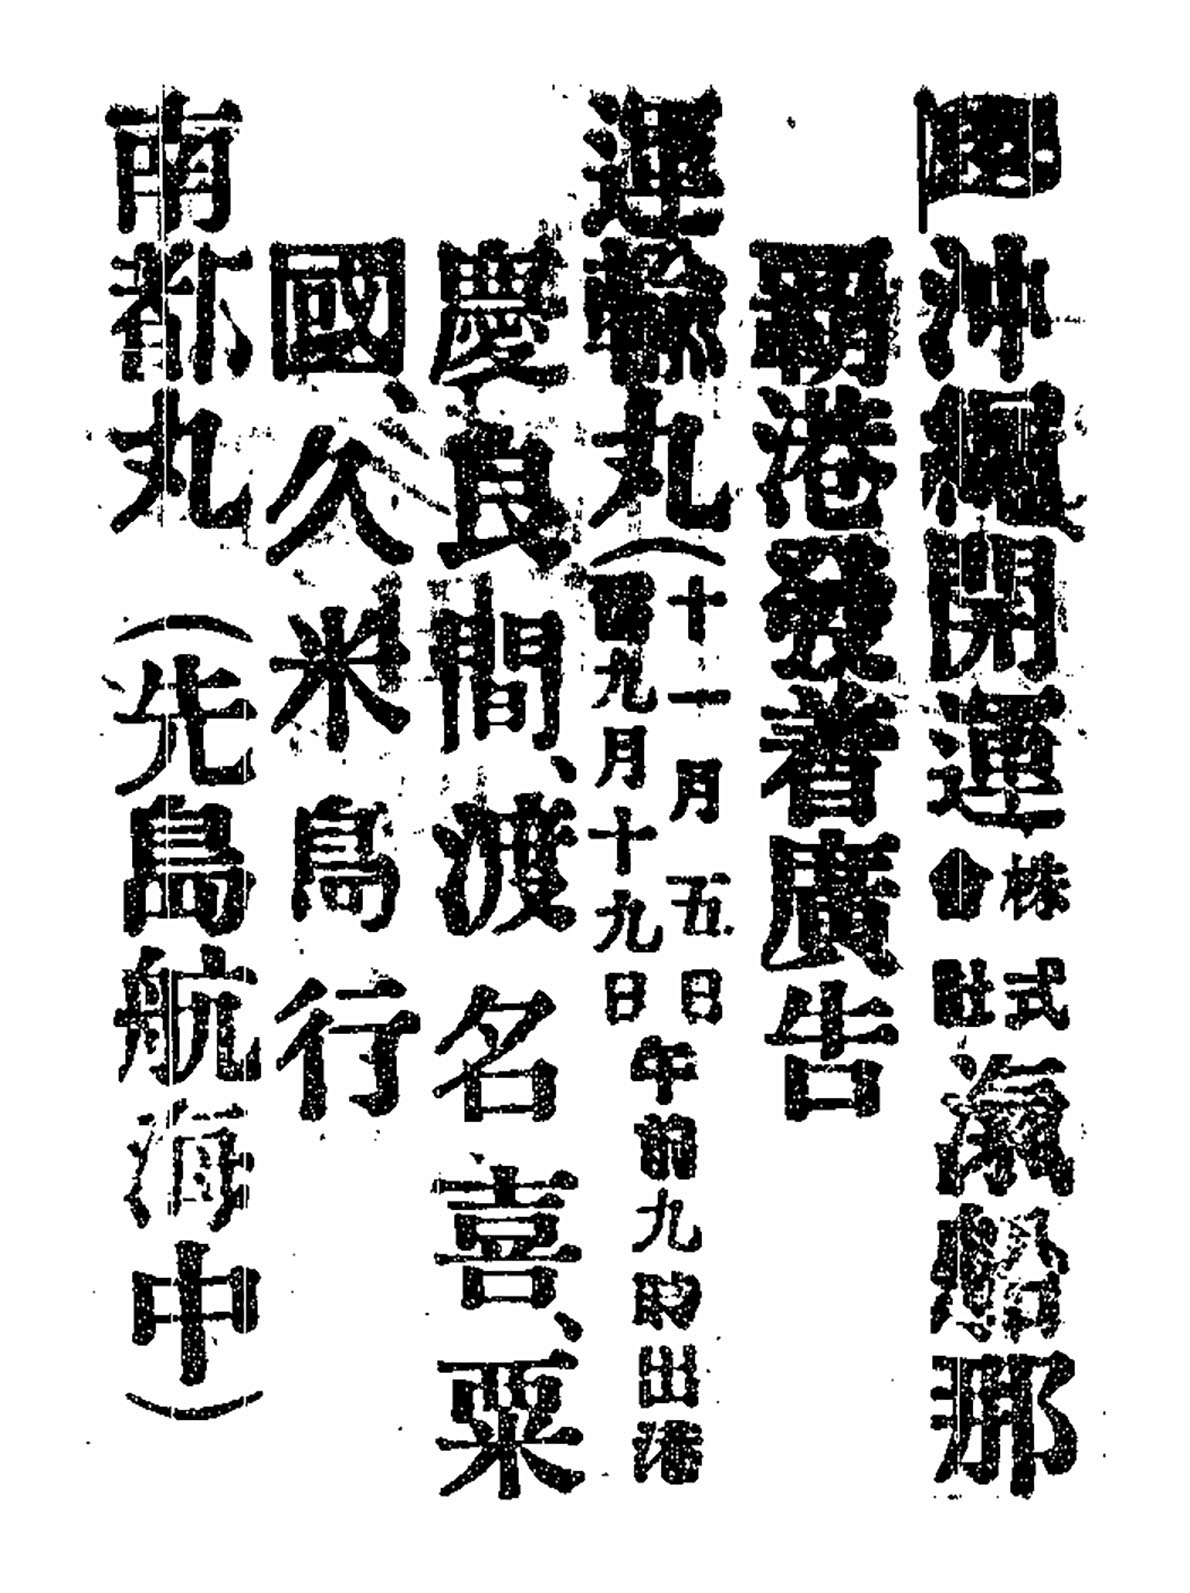 沖繩開運株式會社滊船那
覇港發着廣告
運輸丸(十一月五日舊九月十九日午前九時出港
慶良間、渡名喜、粟
國、久米島行
南都丸(先島航海中)